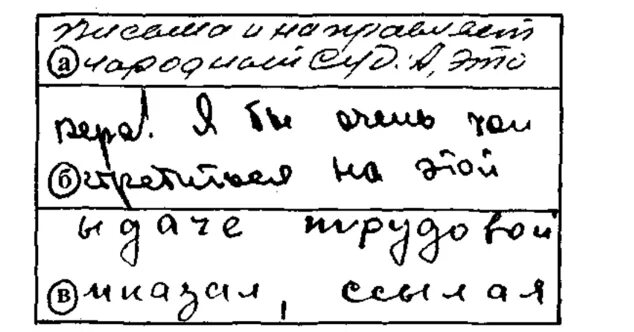 письма и направляет
а народный суд. А, это
вера! Я бы очень хот
б стретиться на этой
ыдаче трудовой
в тказал, ссылая